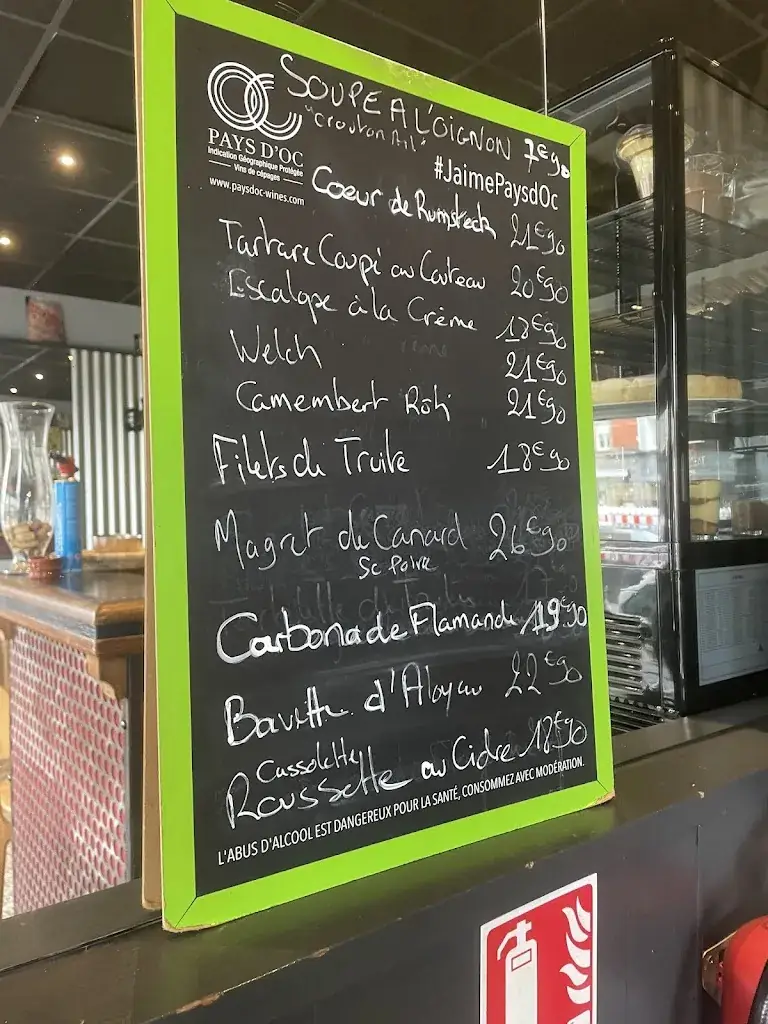 SOUPE A L'OIGNON 7€90
"crouton Ail"
PAYS D'OC
Indication Géographique Protégée
Vins de cépages
www.paysdoc-wines.com
#JaimePaysdOc
Coeur de Rumsteck 21€90
Tartare Coupé au Couteau 20€90
Escalope à la Crème 18€90
Welch 21€90
Camembert Rôti 21€90
Filets de Truite 18€90
Magret de Canard 26€90
Sc Poivre
Carbonade Flamande 19€90
Bavette d'Aloyau 22€90
Cassolette
Roussette au Cidre 18€90
L'ABUS D'ALCOOL EST DANGEREUX POUR LA SANTÉ, CONSOMMEZ AVEC MODÉRATION.